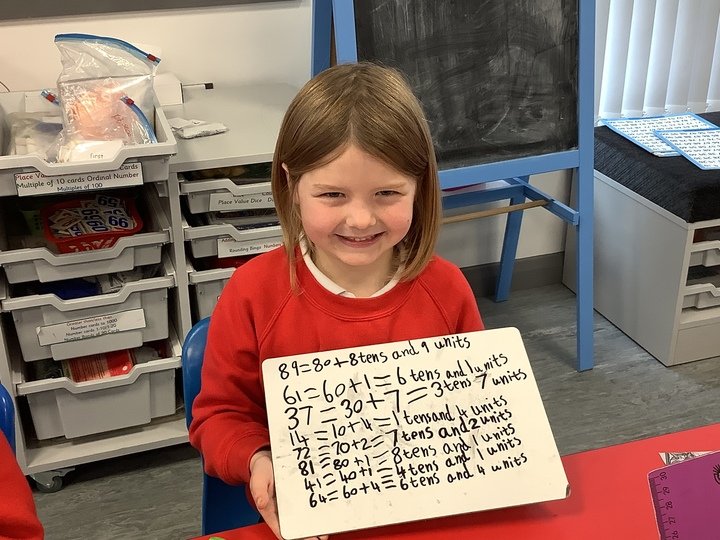 First
Place Value
Multiple of 10 cards Ordinal Number
Multiples of 100
Place Value Dice
Rounding
Numbers
99
89=80+8tens and 9 units
61=60+1=6 tens and 1units
37=30+7=3tens 7 units
14=10+4=1tens and 4 units
72=70+2=7 tens and 2units
81=80+1=8tens and 1units
41=40+1=4tens and 1 units
64=60+4=6tens and 4 units